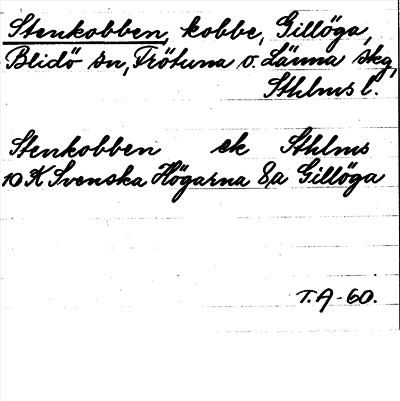 Stenkobben, kobbe, Gillöga,
Blidö sn, Frötuna o. Länna skg,
Sthlms l.
Stenkobben ek Sthlms
10 K Svenska Högarna 8a Gillöga
T.A-60.